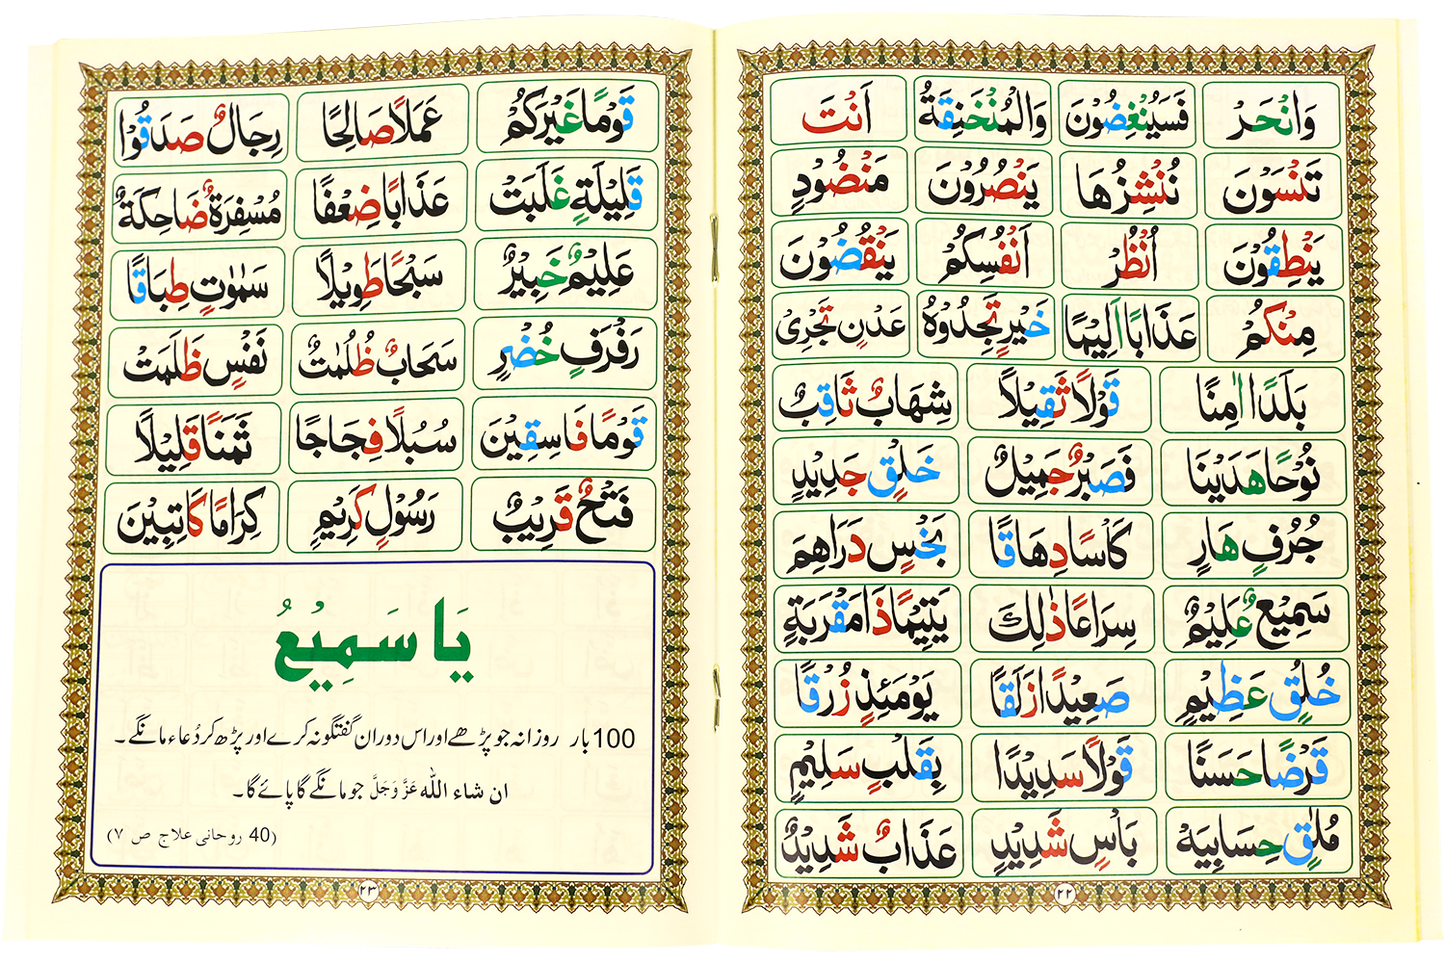 وَانْحَرْ فَسَيُنْغِضُوْنَ وَالْمُنْخَنِقَةُ اَنْتَ
تَنْسَوْنَ نُنْشِزُهَا يَنْصُرُوْنَ مَنْضُوْدٍ
يَنْطِقُوْنَ اُنْظُرْ اَنْفُسِكُمْ يَنْقُضُوْنَ
مِنْكُمْ عَذَابًا اَلِيْمًا خَيْرٍ تَجِدُوْهُ عَدْنٍ تَجْرِيْ
بَلَدًا اٰمِنًا قَوْلًا ثَقِيْلًا شِهَابٌ ثَاقِبٌ
نُوْحًا هَدَيْنَا فَصَبْرٌ جَمِيْلٌ خَلْقٍ جَدِيْدٍ
جُرُفٍ هَارٍ كَاْسًا دِهَاقًا بَخْسٍ دَرَاهِمَ
سَمِيْعٌ عَلِيْمٌ سِرَاعًا ذٰلِكَ يَتِيْمًا ذَا مَقْرَبَةٍ
خُلُقٍ عَظِيْمٍ صَعِيْدًا زَلَقًا يَوْمَئِذٍ زُرْقًا
قَرْضًا حَسَنًا قَوْلًا سَدِيْدًا بِقَلْبٍ سَلِيْمٍ
مُلٰقٍ حِسَابِيَهْ بَاْسٍ شَدِيْدٍ عَذَابٌ شَدِيْدٌ
٢٢
قَوْمًا غَيْرَكُمْ عَمَلًا صَالِحًا رِجَالٌ صَدَقُوْا
قَلِيْلَةٍ غَلَبَتْ عَذَابًا ضِعْفًا مُسْفِرَةٌ ضَاحِكَةٌ
عَلِيْمٌ خَبِيْرٌ سَبْحًا طَوِيْلًا سَمٰوٰتٍ طِبَاقًا
رَفْرَفٍ خُضْرٍ سَحَابٌ ظُلُمٰتٌ نَفْسٍ ظَلَمَتْ
قَوْمًا فَاسِقِيْنَ سُبُلًا فِجَاجًا ثَمَنًا قَلِيْلًا
فَتْحٌ قَرِيْبٌ رَسُوْلٍ كَرِيْمٍ كِرَامًا كَاتِبِيْنَ
يَا سَمِيْعُ
100 بار روزانہ جو پڑھے اور اس دوران گفتگو نہ کرے اور پڑھ کر دُعاء مانگے ۔
ان شاء اللّٰہ عَزَّ وَجَلَّ جو مانگے گا پائے گا ۔
(40 روحانی علاج ص ٧)
٢٣